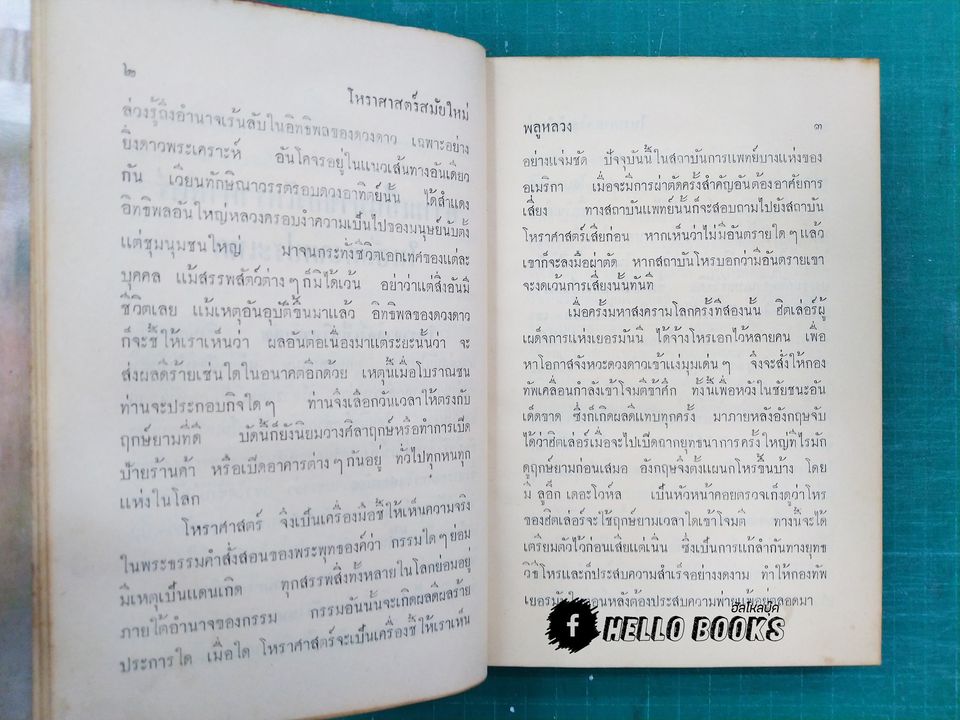 ๒
โหราศาสตร์สมัยใหม่
ล่วงรู้ถึงอำนาจเร้นลับในอิทธิพลของดวงดาว เฉพาะอย่าง
ยิ่งดาวพระเคราะห์ อันโคจรอยู่ในแนวเส้นทางอันเดียว
กัน เวียนทักษิณาวรรตรอบดวงอาทิตย์นั้น ได้สำแดง
อิทธิพลอันใหญ่หลวงครอบงำความเป็นไปของมนุษย์นับตั้ง
แต่ชุมนุมชนใหญ่ มาจนกระทั่งชีวิตเอกเทศของแต่ละ
บุคคล แม้สรรพสัตว์ต่าง ๆ ก็มิได้เว้น อย่าว่าแต่สิ่งอันมี
ชีวิตเลย แม้เหตุอันอุบัติขึ้นมาแล้ว อิทธิพลของดวงดาว
ก็จะชี้ให้เราเห็นว่า ผลอันต่อเนื่องมาแต่ระยะนั้นว่า จะ
ส่งผลดีร้ายเช่นใดในอนาคตอีกด้วย เหตุนี้เมื่อโบราณชน
ท่านจะประกอบกิจใด ๆ ท่านจึงเลือกวันเวลาให้ตรงกับ
ฤกษ์ยามที่ดี บัดนี้ก็ยังนิยมวางศิลาฤกษ์หรือทำการเปิด
ป้ายร้านค้า หรือเปิดอาคารต่าง ๆ กันอยู่ ทั่วไปทุกหนทุก
แห่งในโลก
โหราศาสตร์ จึงเป็นเครื่องมือชี้ให้เห็นความจริง
ในพระธรรมคำสั่งสอนของพระพุทธองค์ว่า กรรมใด ๆ ย่อม
มีเหตุเป็นแดนเกิด ทุกสรรพสิ่งทั้งหลายในโลกย่อมอยู่
ภายใต้อำนาจของกรรม กรรมอันนั้นจะเกิดผลดีผลร้าย
ประการใด เมื่อใด โหราศาสตร์จะเป็นเครื่องชี้ให้เราเห็น
พลูหลวง ๓
อย่างแจ่มชัด ปัจจุบันนี้ในสถาบันการแพทย์บางแห่งของ
อเมริกา เมื่อจะมีการผ่าตัดครั้งสำคัญอันต้องอาศัยการ
เสี่ยง ทางสถาบันแพทย์นั้นก็จะสอบถามไปยังสถาบัน
โหราศาสตร์เสียก่อน หากเห็นว่าไม่มีอันตรายใด ๆ แล้ว
เขาก็จะลงมือผ่าตัด หากสถาบันโหรบอกว่ามีอันตรายเขา
จะงดเว้นการเสี่ยงนั้นทันที
เมื่อครั้งมหาสงครามโลกครั้งที่สองนั้น ฮิตเล่อร์ผู้
เผด็จการแห่งเยอรมันนี ได้จ้างโหรเอกไว้หลายคน เพื่อ
หาโอกาสจังหวะดวงดาวเข้าแง่มุมเด่น ๆ จึงจะสั่งให้กอง
ทัพเคลื่อนกำลังเข้าโจมตีข้าศึก ทั้งนี้เพื่อหวังในชัยชนะอัน
เด็ดขาด ซึ่งก็เกิดผลดีแทบทุกครั้ง มาภายหลังอังกฤษจับ
ได้ว่าฮิตเล่อร์เมื่อจะไปเปิดฉากยุทธนาการครั้งใหญ่ที่ไรมัก
ดูฤกษ์ยามก่อนเสมอ อังกฤษจึงตั้งแผนกโหรขึ้นบ้าง โดย
มี ลูอิ๊ก เดอะโวห์ล เป็นหัวหน้าคอยตรวจเก็งดูว่าโหร
ของฮิตเล่อร์จะใช้ฤกษ์ยามเวลาใดเข้าโจมตี ทางนี้จะได้
เตรียมตัวไว้ก่อนเสียแต่เนิ่น ซึ่งเป็นการแก้ลำกันทางยุทธ
วิธีโหรและก็ประสบความสำเร็จอย่างงดงาม ทำให้กองทัพ
เยอรมันในตอนหลังต้องประสบความพ่ายแพ้อยู่ตลอดมา
ฮัลโหลบุ๊ค
f HELLO BOOKS